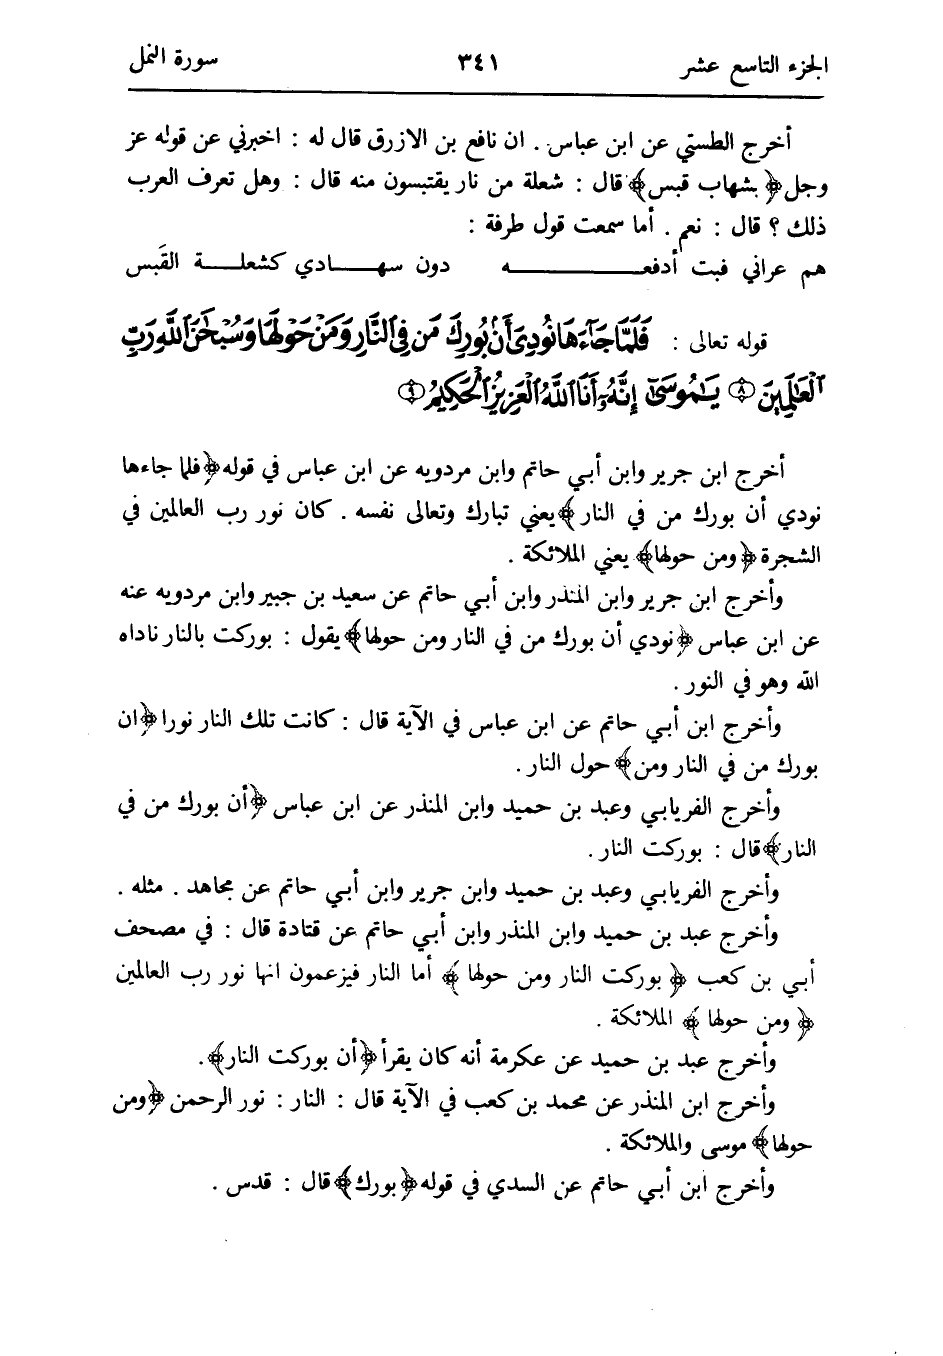 الجزء التاسع عشر ٣٤١ سورة النمل
أخرج الطستي عن ابن عباس . ان نافع بن الازرق قال له : اخبرني عن قوله عز
وجل ﴿ بشهاب قبس ﴾ قال : شعلة من نار يقتبسون منه قال : وهل تعرف العرب
ذلك ؟ قال : نعم . أما سمعت قول طرفة :
هم عراني فبت أدفعـــــه دون سهـــادي كشعلـــة القَبس
قوله تعالى : فَلَمَّا جَآءَهَا نُودِىَ أَنۢ بُورِكَ مَن فِى ٱلنَّارِ وَمَنْ حَوْلَهَا وَسُبْحَٰنَ ٱللَّهِ رَبِّ
ٱلْعَٰلَمِينَ ﴿٨﴾ يَٰمُوسَىٰٓ إِنَّهُۥٓ أَنَا ٱللَّهُ ٱلْعَزِيزُ ٱلْحَكِيمُ ﴿٩﴾
أخرج ابن جرير وابن أبي حاتم وابن مردويه عن ابن عباس في قوله ﴿ فلما جاءها
نودي أن بورك من في النار ﴾ يعني تبارك وتعالى نفسه . كان نور رب العالمين في
الشجرة ﴿ ومن حولها ﴾ يعني الملائكة .
وأخرج ابن جرير وابن المنذر وابن أبي حاتم عن سعيد بن جبير وابن مردويه عنه
عن ابن عباس ﴿ نودي أن بورك من في النار ومن حولها ﴾ يقول : بوركت بالنار ناداه
الله وهو في النور .
وأخرج ابن أبي حاتم عن ابن عباس في الآية قال : كانت تلك النار نورا ﴿ ان
بورك من في النار ومن ﴾ حول النار .
وأخرج الفريابي وعبد بن حميد وابن المنذر عن ابن عباس ﴿ أن بورك من في
النار ﴾ قال : بوركت النار .
وأخرج الفريابي وعبد بن حميد وابن جرير وابن أبي حاتم عن مجاهد . مثله .
وأخرج عبد بن حميد وابن المنذر وابن أبي حاتم عن قتادة قال : في مصحف
أبي بن كعب ﴿ بوركت النار ومن حولها ﴾ أما النار فيزعمون انها نور رب العالمين
﴿ ومن حولها ﴾ الملائكة .
وأخرج عبد بن حميد عن عكرمة أنه كان يقرأ ﴿ أن بوركت النار ﴾ .
وأخرج ابن المنذر عن محمد بن كعب في الآية قال : النار : نور الرحمن ﴿ ومن
حولها ﴾ موسى والملائكة .
وأخرج ابن أبي حاتم عن السدي في قوله ﴿ بورك ﴾ قال : قدس .